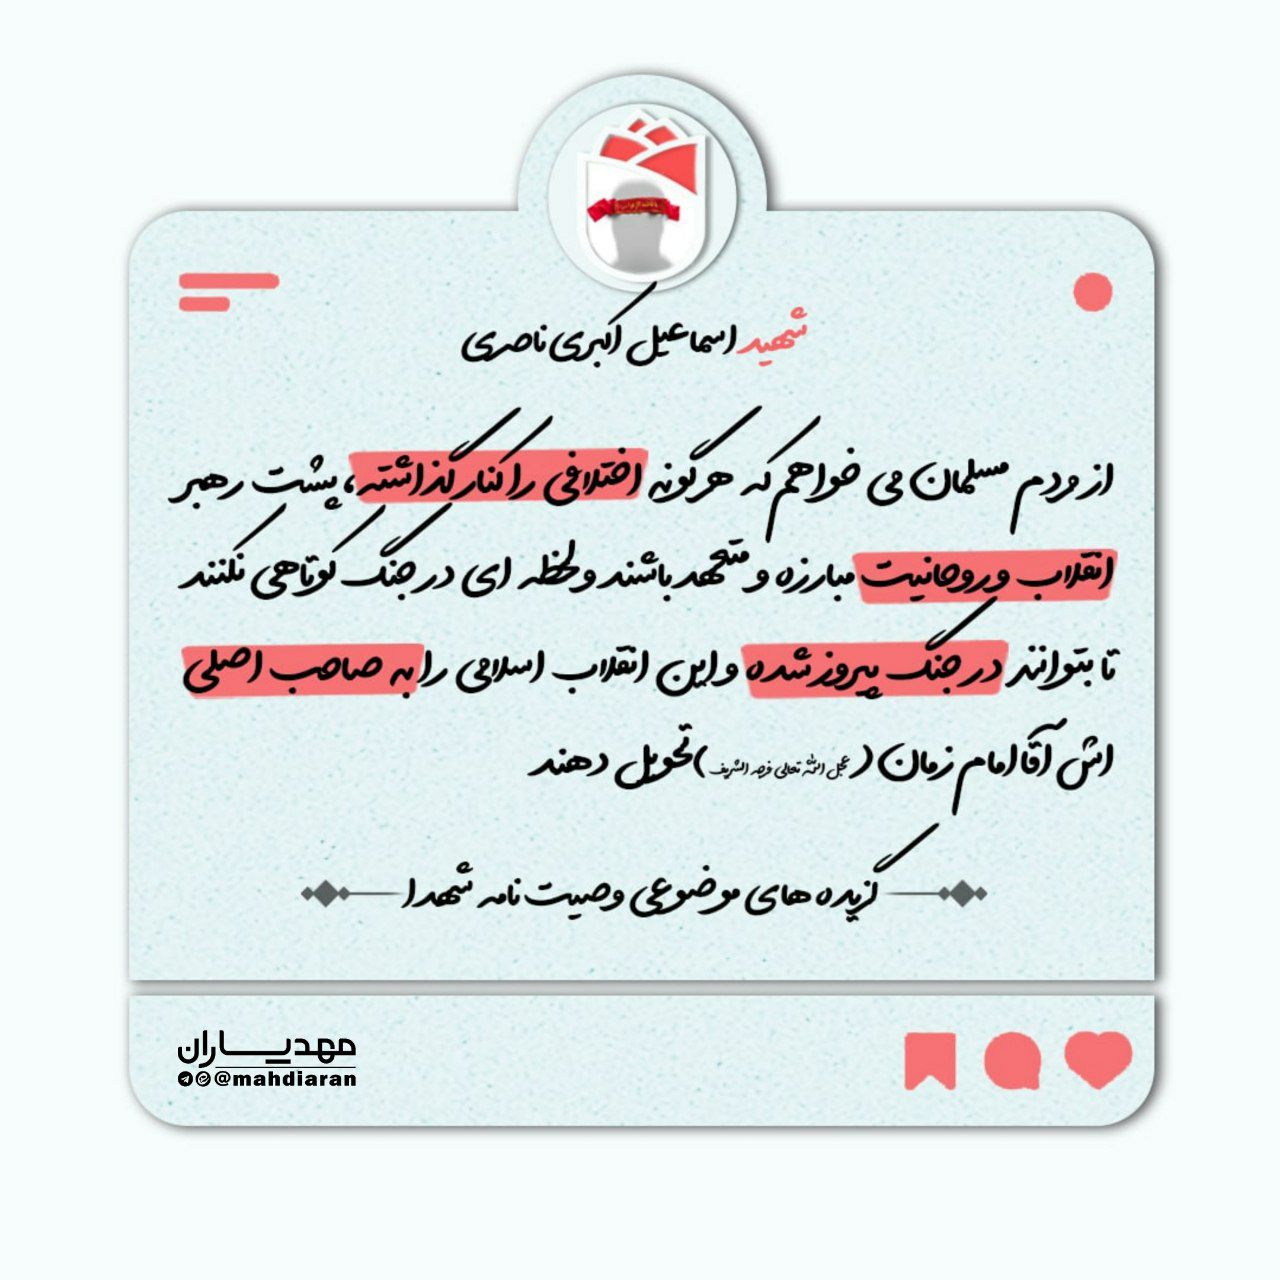 شهید اسماعیل اکبری ناصری
از مردم مسلمان می خواهم که هرگونه اختلافی را کنار گذاشته، پشت رهبر
انقلاب و روحانیت مبارزه و متعهد باشند و لحظه ای در جنگ کوتاهی نکنند
تا بتوانند در جنگ پیروز شده و این انقلاب اسلامی را به صاحب اصلی
اش آقا امام زمان (عجل الله تعالی فرجه الشریف) تحویل دهند
گزیده های موضوعی وصیت نامه شهدا
مهدیاران
@mahdiaran